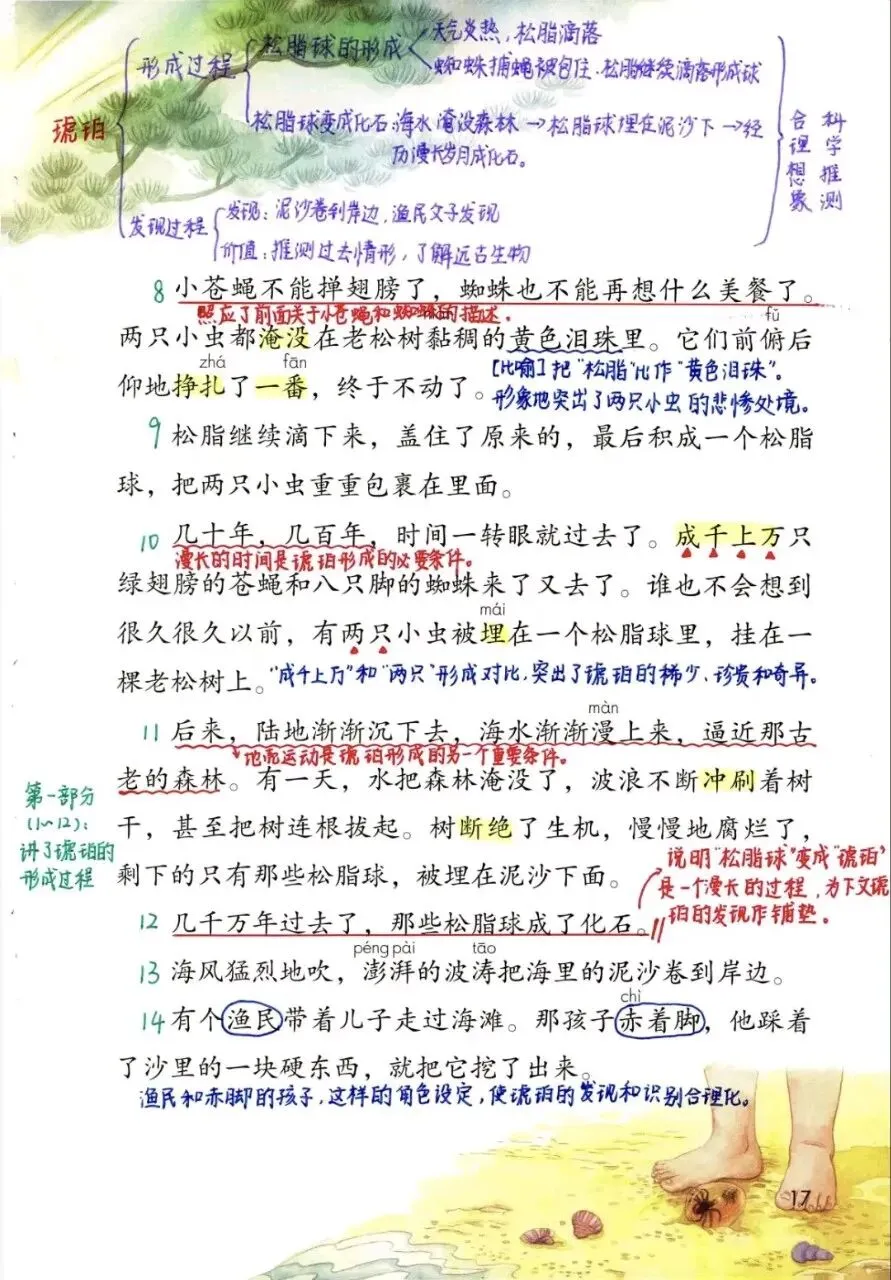 琥珀
形成过程
松脂球的形成
天气炎热，松脂滴落
蜘蛛捕蝇被包住、松脂继续滴落形成球
松脂球变成化石：海水淹没森林→松脂球埋在泥沙下→经
历漫长岁月成化石。
发现过程
发现：泥沙卷到岸边，渔民父子发现
价值：推测过去情形，了解远古生物
合理想象
科学推测
8 小苍蝇不能掸翅膀了，蜘蛛也不能再想什么美餐了。
照应了前面关于小苍蝇和蜘蛛的描述。
fǔ
两只小虫都淹没在老松树黏稠的黄色泪珠里。它们前俯后
zhá fān
仰地挣扎了一番，终于不动了。
[比喻]把“松脂”比作“黄色泪珠”。
形象地突出了两只小虫的悲惨处境。
9 松脂继续滴下来，盖住了原来的，最后积成一个松脂
球，把两只小虫重重包裹在里面。
10 几十年，几百年，时间一转眼就过去了。成千上万只
漫长的时间是琥珀形成的必要条件。
绿翅膀的苍蝇和八只脚的蜘蛛来了又去了。谁也不会想到
mái
很久很久以前，有两只小虫被埋在一个松脂球里，挂在一
棵老松树上。
“成千上万”和“两只”形成对比，突出了琥珀的稀少、珍贵和奇异。
màn
11 后来，陆地渐渐沉下去，海水渐渐漫上来，逼近那古
地壳运动是琥珀形成的另一个重要条件。
老的森林。有一天，水把森林淹没了，波浪不断冲刷着树
干，甚至把树连根拔起。树断绝了生机，慢慢地腐烂了，
剩下的只有那些松脂球，被埋在泥沙下面。
第一部分
(1~12)：
讲了琥珀的
形成过程
说明“松脂球”变成“琥珀”
是一个漫长的过程，为下文琥
珀的发现作铺垫。
12 几千万年过去了，那些松脂球成了化石。
péng pài tāo
13 海风猛烈地吹，澎湃的波涛把海里的泥沙卷到岸边。
chì
14 有个渔民带着儿子走过海滩。那孩子赤着脚，他踩着
了沙里的一块硬东西，就把它挖了出来。
渔民和赤脚的孩子，这样的角色设定，使琥珀的发现和识别合理化。
17